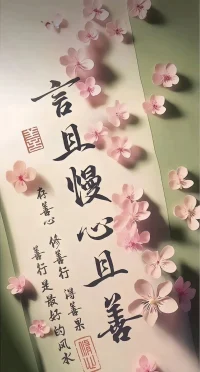 言且慢心且善
存善心 修善行 得善果
善行是最好的风水